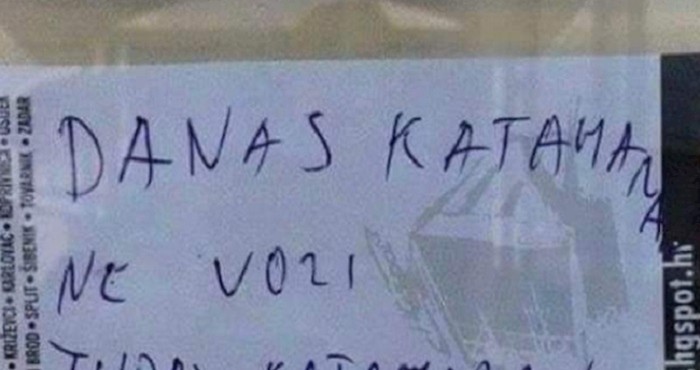 DANAS KATAMANA
NE VOZI
• KRIŽEVCI • KARLOVAC • KOPRIVNICA • OSIJEK
BROD • SPLIT • ŠIBENIK • TOVARNIK • ZADAR
hgspot.hr